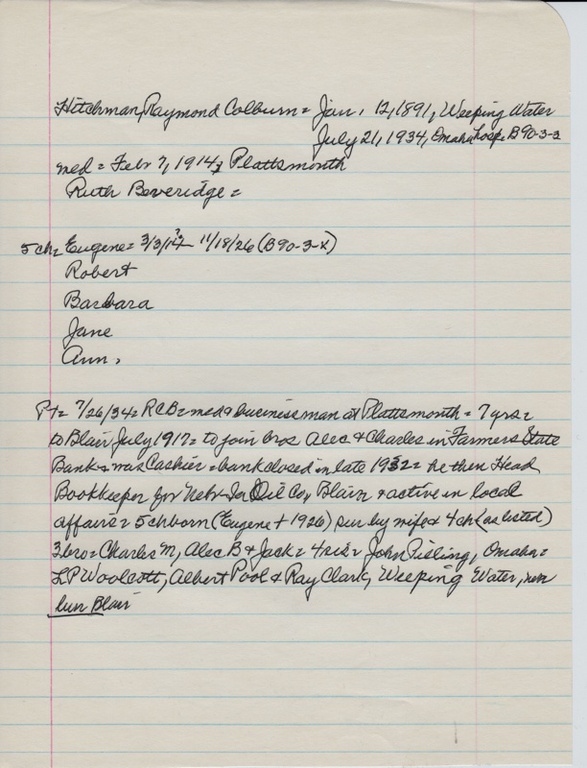 Hitchman, Raymond Colburn = Jan. 12, 1891, Weeping Water
July 21, 1934, Omaha hosp = B90-3-3
med = Feb 7, 1914, Plattsmouth
Ruth Beveridge =
5 ch = Eugene = 3/3/17? - 11/18/26 (B90-3-X)
Robert
Barbara
Jane
Ann.
Pt = 7/26/34 = RCB = med & businessman at Plattsmouth = 7 yrs =
to Blair July 1917 = to join bros Alec & Charles in Farmers State
Bank = was Cashier = bank closed in late 1932 = he then Head
Bookkeeper for Nebr-Ia Oil Co, Blair = active in local
affairs = 5 ch born (Eugene + 1926) sur by wife & 4 ch (as listed)
3 bro = Charles M, Alec B & Jack = 4 sis = John Pieling, Omaha =
L P Woolcott, Albert Pool & Ray Clark, Weeping Water,
bur Blair